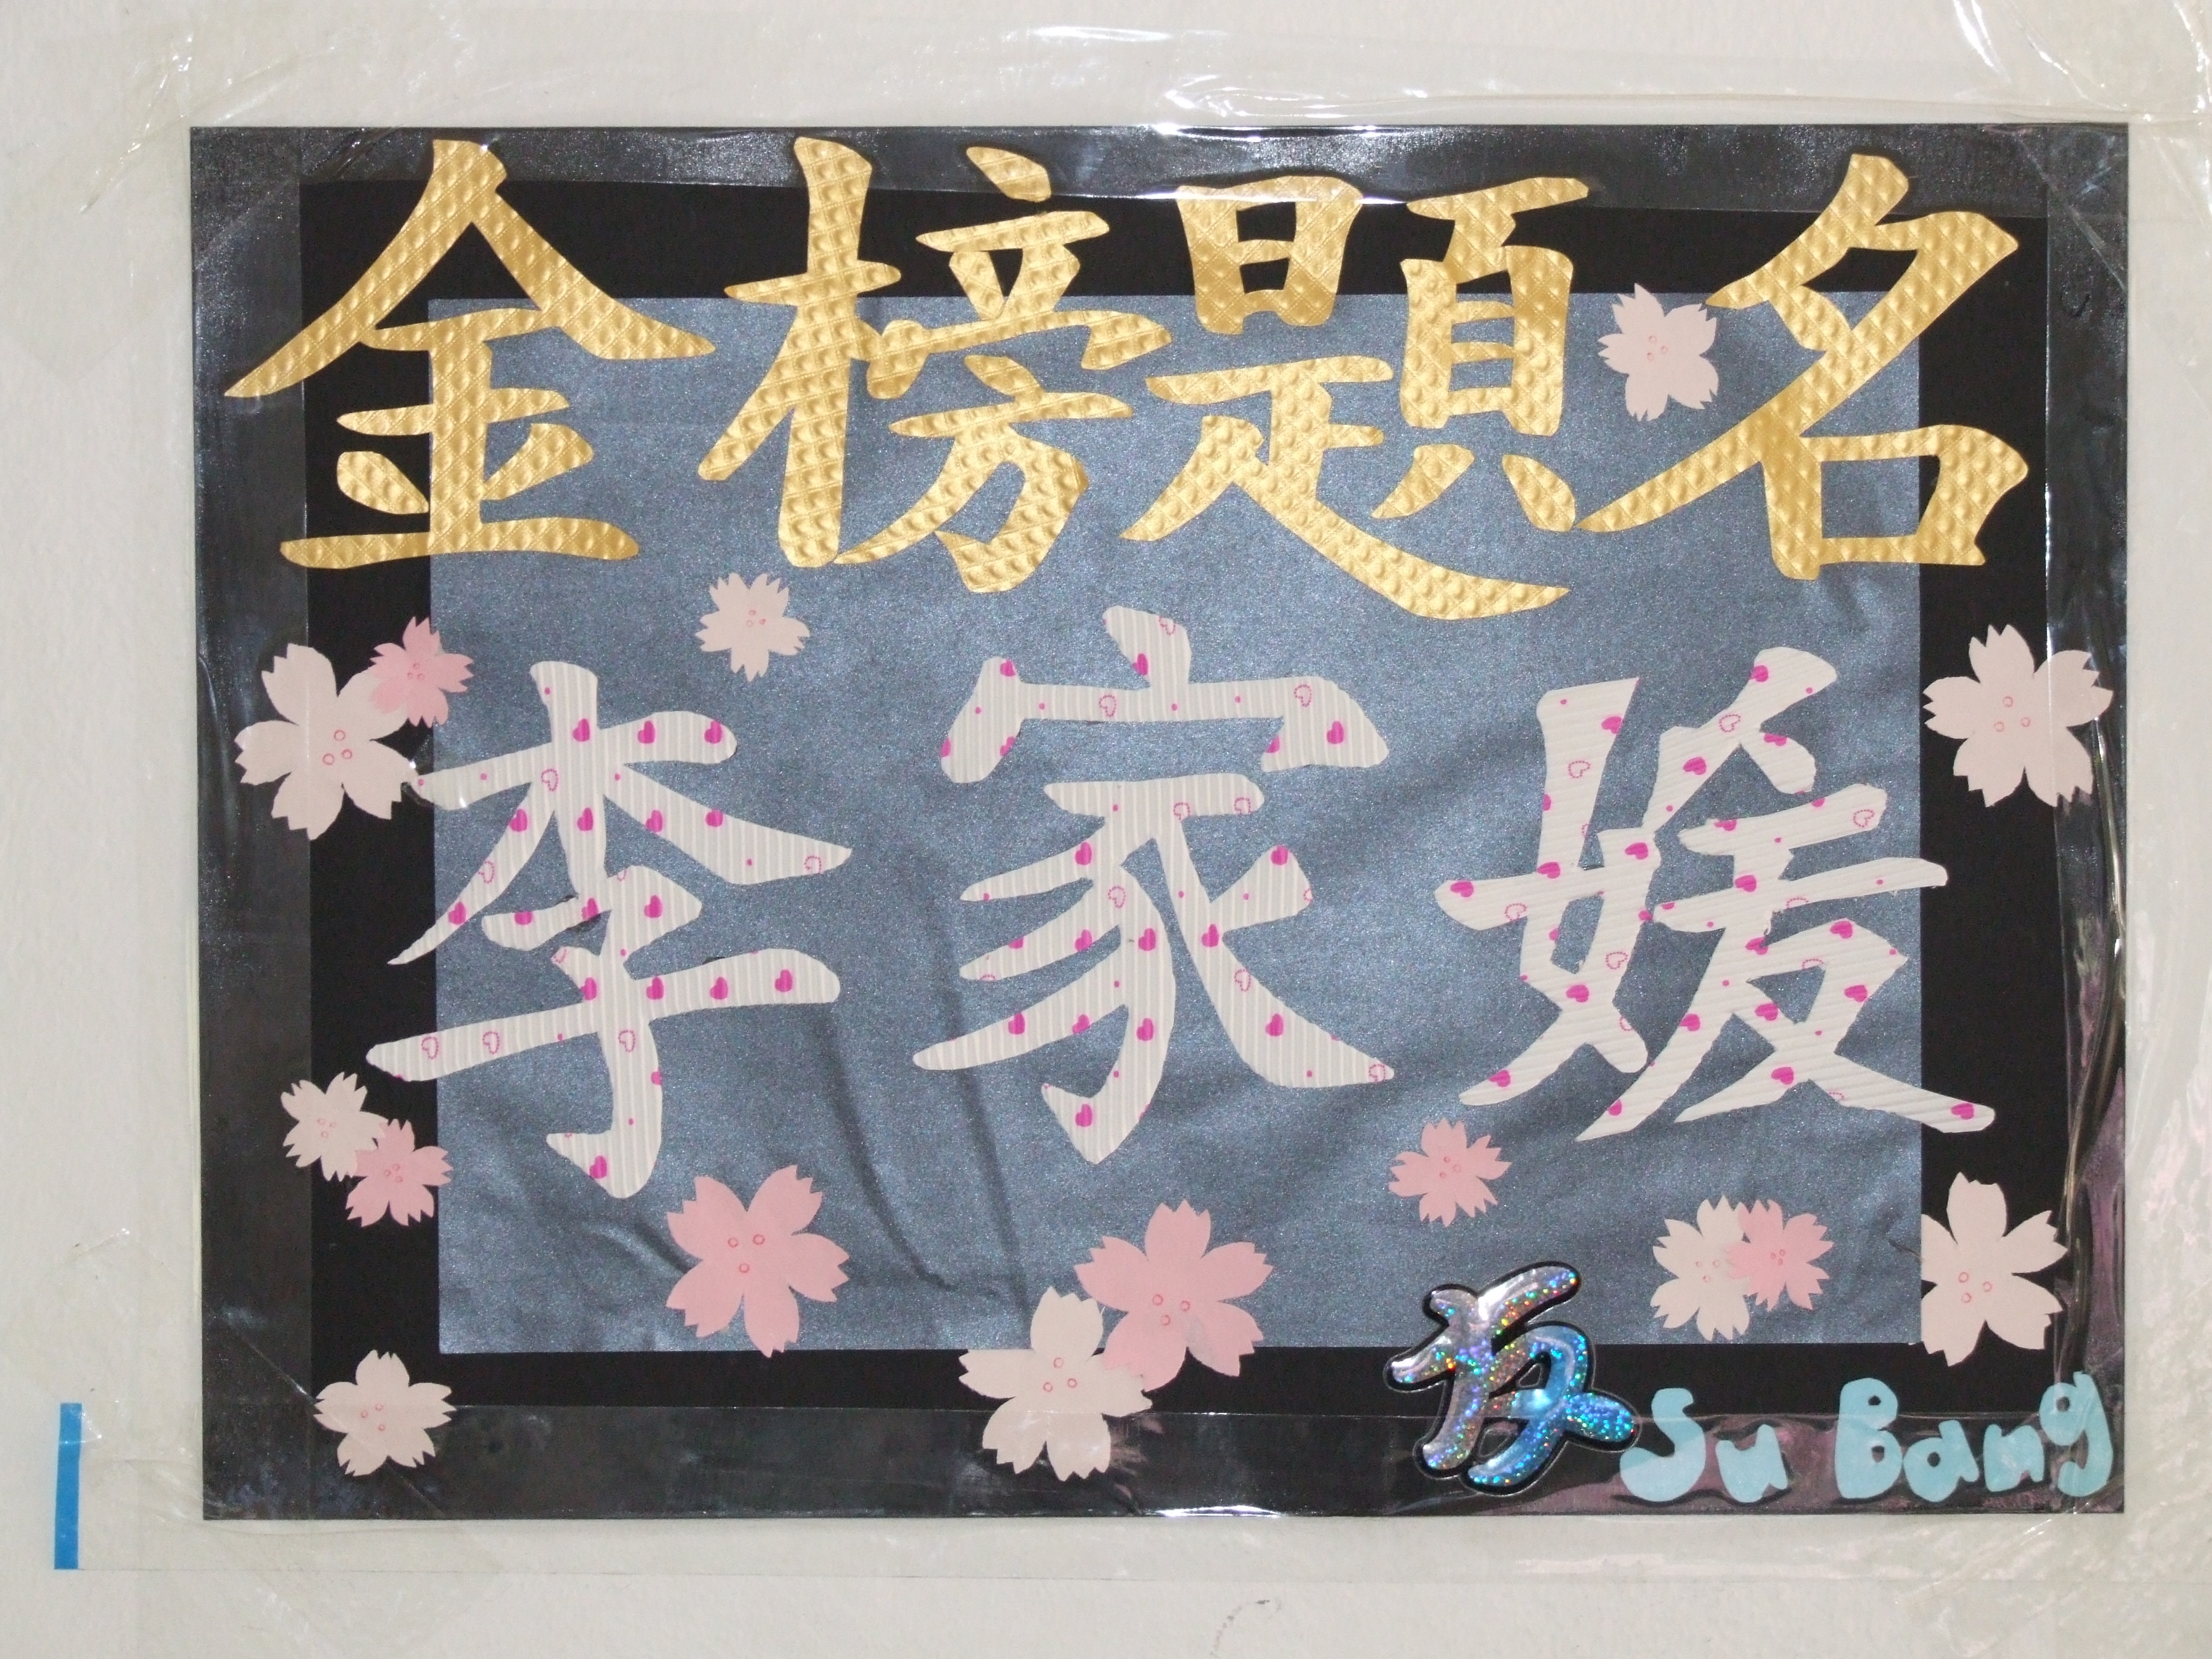 金榜題名
李家媛
Su Bang